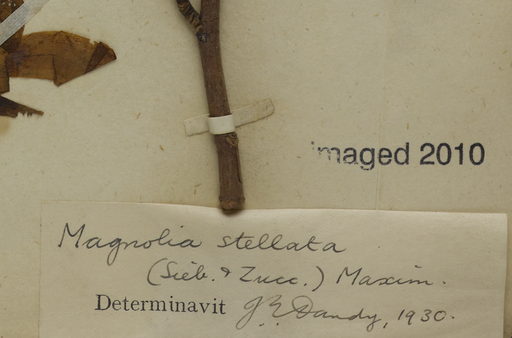 imaged 2010
Magnolia stellata
(Sieb. & Zucc.) Maxim.
Determinavit J. E. Dandy, 1930.